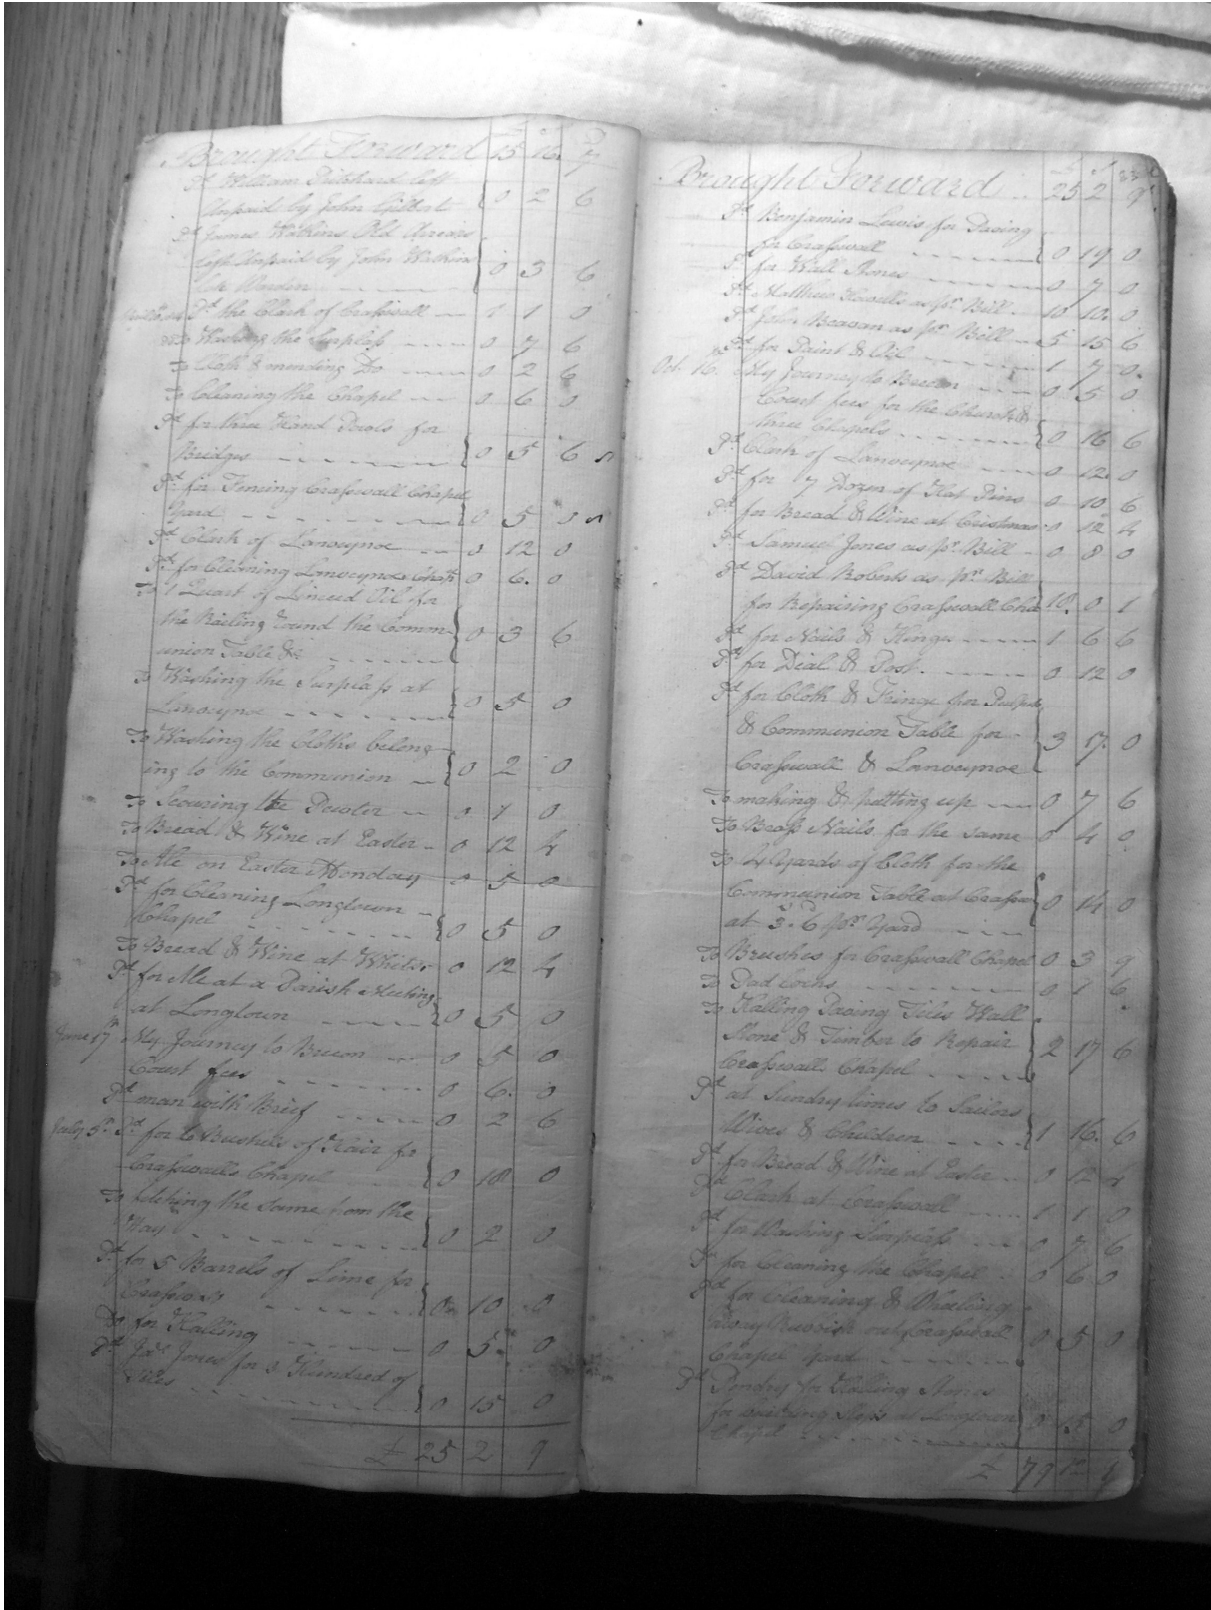 £ S D
Brought Forward 15 16 7
Pd William Pritchard left
Unpaid by John Gilbert 0 2 6
Pd James Watkins Old Arrears
left Unpaid by John Watkins
Ch Warden 0 3 6
Pd the Clark of Crasswall 1 1 0
To Washing the Surplass 0 7 6
To Cloth & mending Do 0 2 6
To Cleaning the Chapel 0 6 0
Pd for three Hand Powls for
Bridges 0 5 6
Pd for Fencing Crasswall Chapel
Yard 0 5 0
Pd Clark of Lanveynoe 0 12 0
Pd for Cleaning Lanveynoe Chapl 0 6 0
To 1 Quart of Linced Oil for
the Railing round the Comm-
union Table &c 0 3 6
To Washing the Surplass at
Lanveynoe 0 5 0
To Washing the Cloths belong-
ing to the Communion 0 2 0
To Scouring the Pewter 0 1 0
To Bread & Wine at Easter 0 12 4
To Ale on Easter Monday 0 5 0
Pd for Cleaning Longtown
Chapel 0 5 0
To Bread & Wine at Whits. 0 12 4
Pd for Ale at a Parish Meeting
at Longtown 0 5 0
June 17th My Journey to Brecon 0 5 0
Court fees 0 6 0
Pd man with Brief 0 2 6
July 5th Pd for 6 Bushels of Hair for
Crasswall Chapel 0 18 0
To fetching the same from the
Hay 0 2 0
Pd for 5 Barrels of Lime for
Crasswall 0 10 0
Do for Halling 0 5 0
Pd Jas Jones for 3 Hundred of
Tiles 0 15 0
£ 25 2 9
£ S D
Brought Forward 25 2 9
Pd Benjamin Lewis for Paving
for Crasswall 0 19 0
Pd for Wall Stones 0 7 0
Pd Matthew Howells as pr Bill 10 10 0
Pd John Beavan as pr Bill 5 15 6
Pd for Paint & Oil 1 7 0
Oct. 16 My Journey to Brecon 0 5 0
Court fees for the Church &
three Chapels 0 16 6
Pd Clark of Lanveynoe 0 12 0
Pd for 7 Dozen of Hat Pins 0 10 6
Pd for Bread & Wine at Cristmas 0 12 4
Pd Samuel Jones as pr Bill 0 8 0
Pd David Roberts as pr Bill
for Repairing Crasswall Cha 18 0 1
Pd for Nails & Hinges 1 6 6
Pd for Dial & Post 0 12 0
Pd for Cloth & Fringe for Pulpit
& Communion Table for
Crasswall & Lanveynoe 3 17 0
To making & putting up 0 7 6
To Brass Nails for the same 0 4 0
To 4 Yards of Cloth for the
Communion Table at Crassw
at 3s. 6d pr Yard 0 14 0
To Brushes for Crasswall Chapel 0 3 9
To Pad locks 0 1 6
To Halling Paving Tiles Wall
Stone & Timber to Repair
Crasswall Chapel 2 17 6
Pd at Sundry times to Sailors
Wives & Children 1 16 6
Pd for Bread & Wine at Easter 0 12 4
Pd Clark at Crasswall 1 1 0
Pd for Washing Surplass 0 7 6
Pd for Cleaning the Chapel 0 6 0
Pd for Cleaning & Wheeling
away Rubbish out Crasswall
Chapel Yard 0 5 0
Pd Pendry for Halling Stones
for building Steps at Longtown
Chapel 0 15 0
£ 79